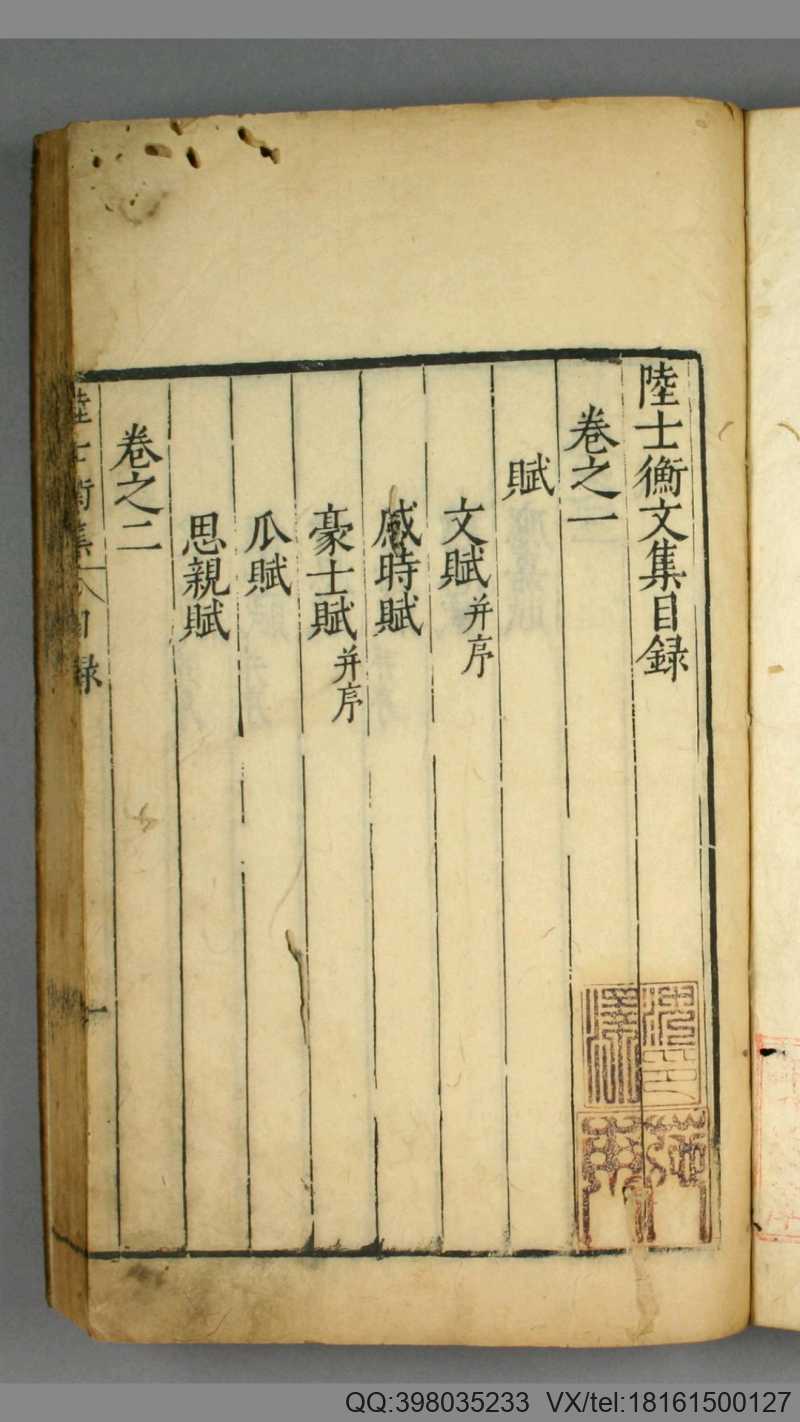 陸士衡文集目録
卷之一
賦
文賦并序
感時賦
豪士賦并序
瓜賦
思親賦
卷之二
陸士衡集 目録
一
QQ:398035233 VX/tel:18161500127